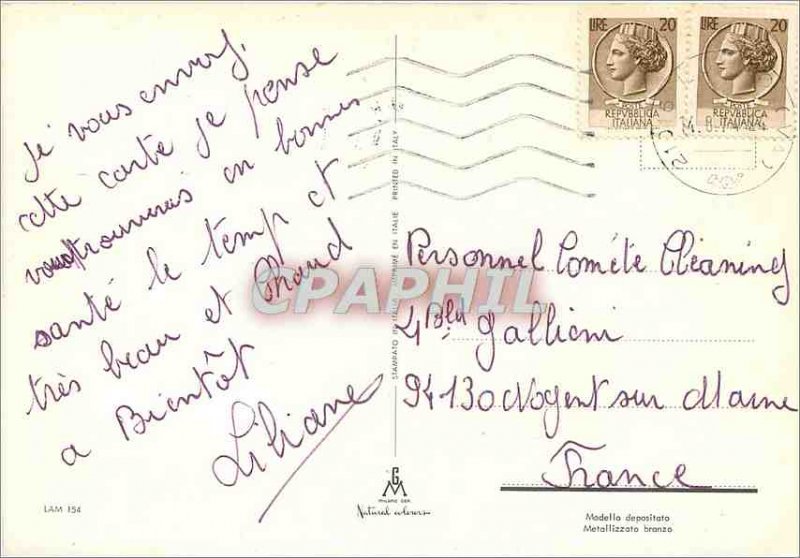 Je vous envoy,
cette carte je pense
vous trouverais en bonnes
santé le temp et
très beau et Chaud
a Bientôt
Liliane
LIRE 20
REPVBBLICA
ITALIANA
LIRE 20
REPVBBLICA
ITALIANA
Personnel Comète Cléaning
4 Bld Gallieni
94130 Nogent sur Marne
France
CPAPHIL
STAMPATO IN ITALIA - IMPRIMÉ EN ITALIE - PRINTED IN ITALY
GM
Natural colours
LAM 154
Modello depositato
Metallizzato bronzo